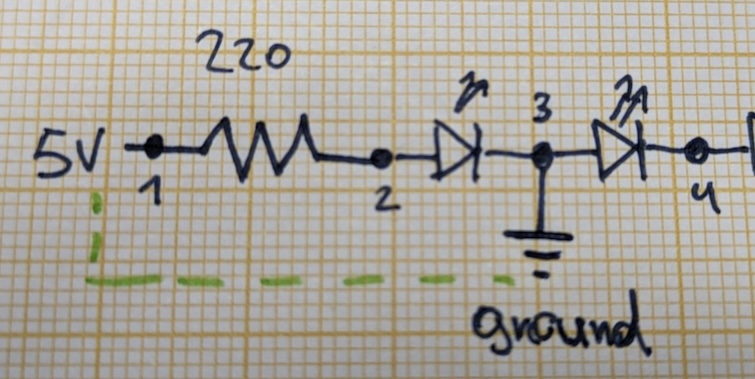 220
5V
3
1
2
4
ground